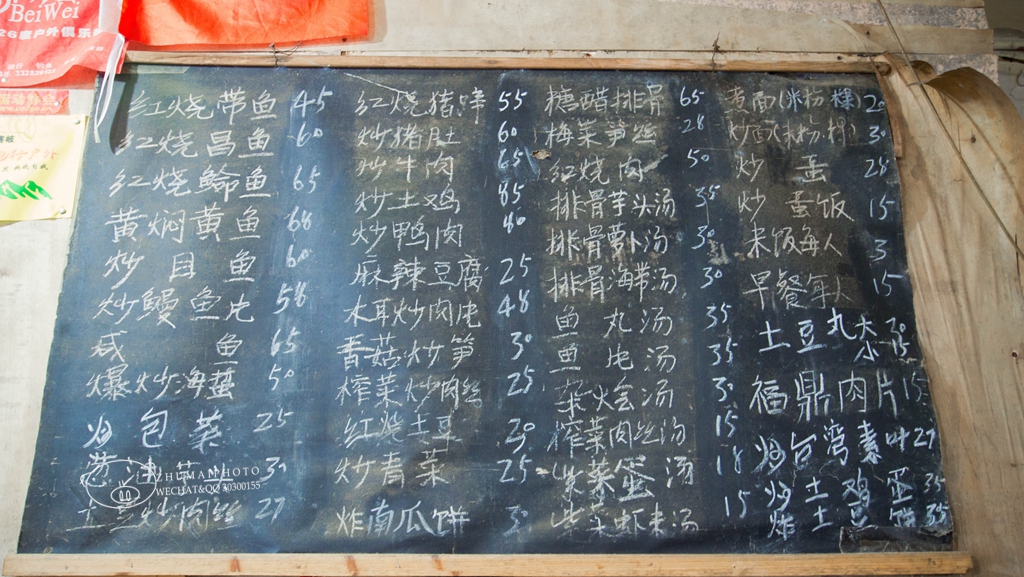 BeiWei
26度户外俱乐
红烧带鱼 45
红烧昌鱼 60
红烧鮸鱼 65
黄焖黄鱼 68
炒目鱼 60
炒鳗鱼片 58
咸鱼 65
爆炒海蜇 50
炒包菜 25
葱油 30
炒肉丝 27
红烧猪蹄 55
炒猪肚 60
炒牛肉 65
炒土鸡 85
炒鸭肉 40
麻辣豆腐 25
木耳炒肉片 48
香菇炒笋 30
榨菜炒肉丝 25
红烧土豆 20
炒青菜 25
炸南瓜饼 30
糖醋排骨 65
梅菜笋丝 28
红烧肉 50
排骨芋头汤 35
排骨萝卜汤 30
排骨海带汤 30
鱼丸汤 35
鱼片汤 35
菜烩汤 30
榨菜肉丝汤 15
紫菜蛋汤 18
紫菜虾米汤 15
煮面(米粉 粿) 20
炒面(米粉 粿) 30
炒蛋 28
炒蛋饭 15
米饭每人 3
早餐每人 15
土豆丸大小
福鼎肉片 15
炒台湾素叶 27
炒土鸡蛋 35
炸土豆饼 35
ZHUMANPHOTO
WECHAT&QQ 30300155